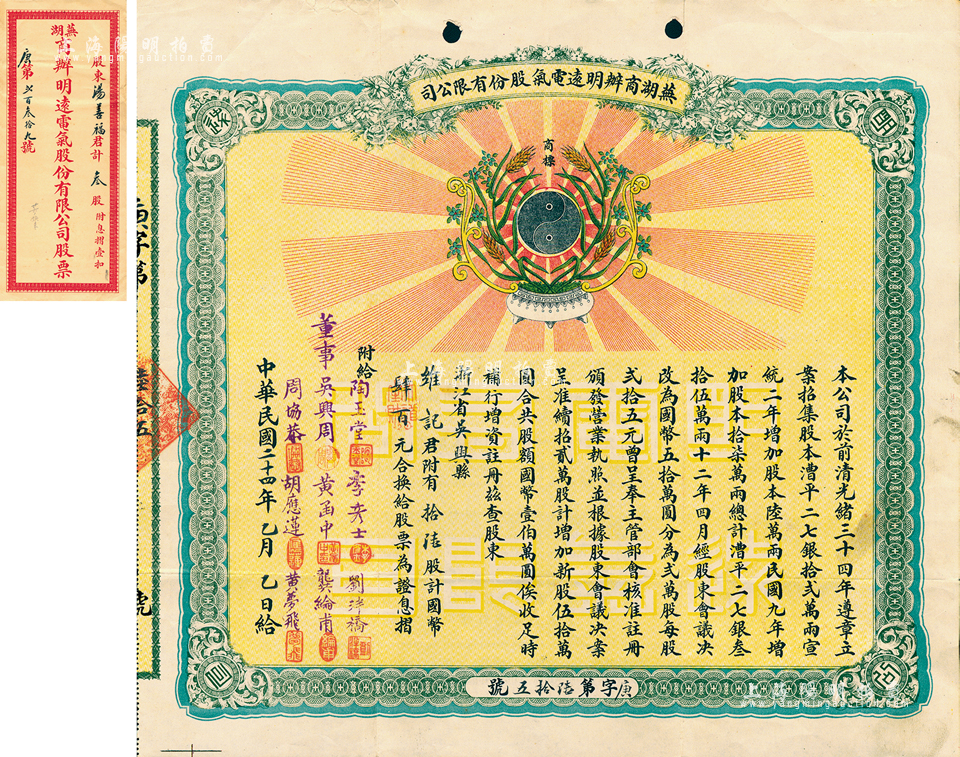 蕪湖
商辦明遠電氣股份有限公司股票
股東湯善福君計叁股附息摺壹扣
庚第七百叁拾九號
蕪湖商辦明遠電氣股份有限公司
商標
本公司於前清光緒三十四年遵章立
案招集股本漕平二七銀拾弍萬兩宣
統二年增加股本陸萬兩民國九年增
加股本拾柒萬兩總計漕平二七銀叁
拾伍萬兩十二年四月經股東會議決
改為國幣五拾萬圓分為弍萬股每股
弍拾五元曾呈奉主管部會核准註冊
頒發營業執照並根據股東會議決案
呈准續招貳萬股計增加新股伍拾萬
圓合共股額國幣壹伯萬圓俟收足時
補行增資註冊茲查股東
浙江省吳興縣
維記君附有拾陆股計國幣
肆百元合換給股票為證息摺
附給
陶玉堂 李彥士 劉泮橋
董事 吳興周 黃函中 龔綸甫
周協恭 胡應蓮 黃夢飛
中華民國二十四年乙月乙日給
庚字第陆拾五號
庚字第
陸拾五
號
上海陽明拍賣
www.yangmingauction.com